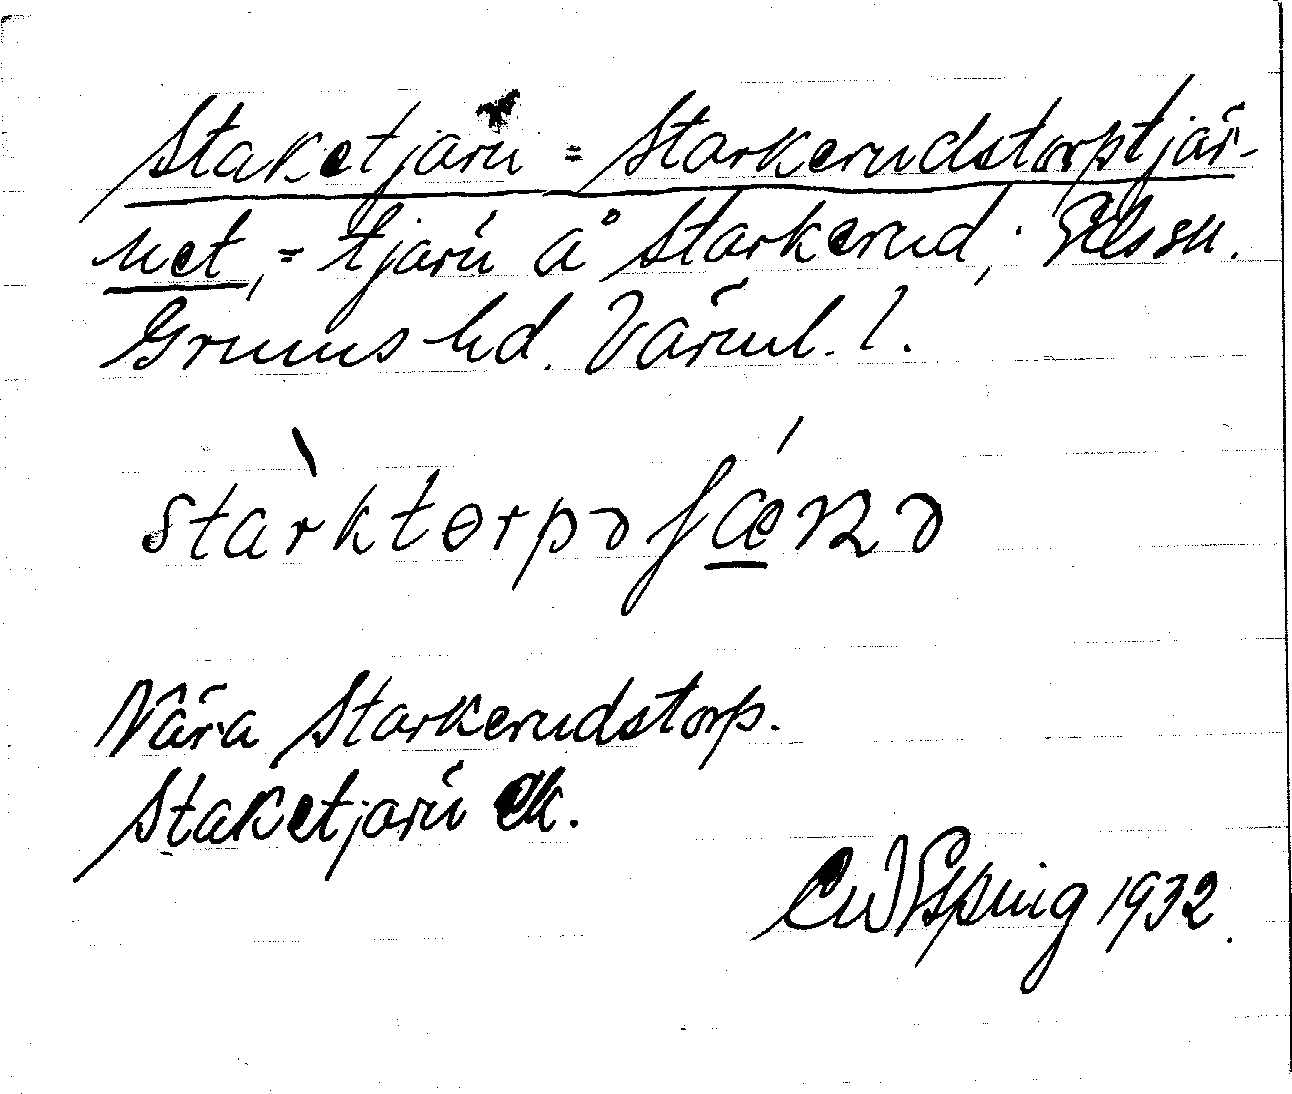 Staketjärn = Starkerudstorptjär-
net, = tjärn å Starkerud, Eds sn.
Grums hd. Värml. l.
starktɵrpəʃænə
Nära Starkerudstorp.
Staketjärn ek.
1932.